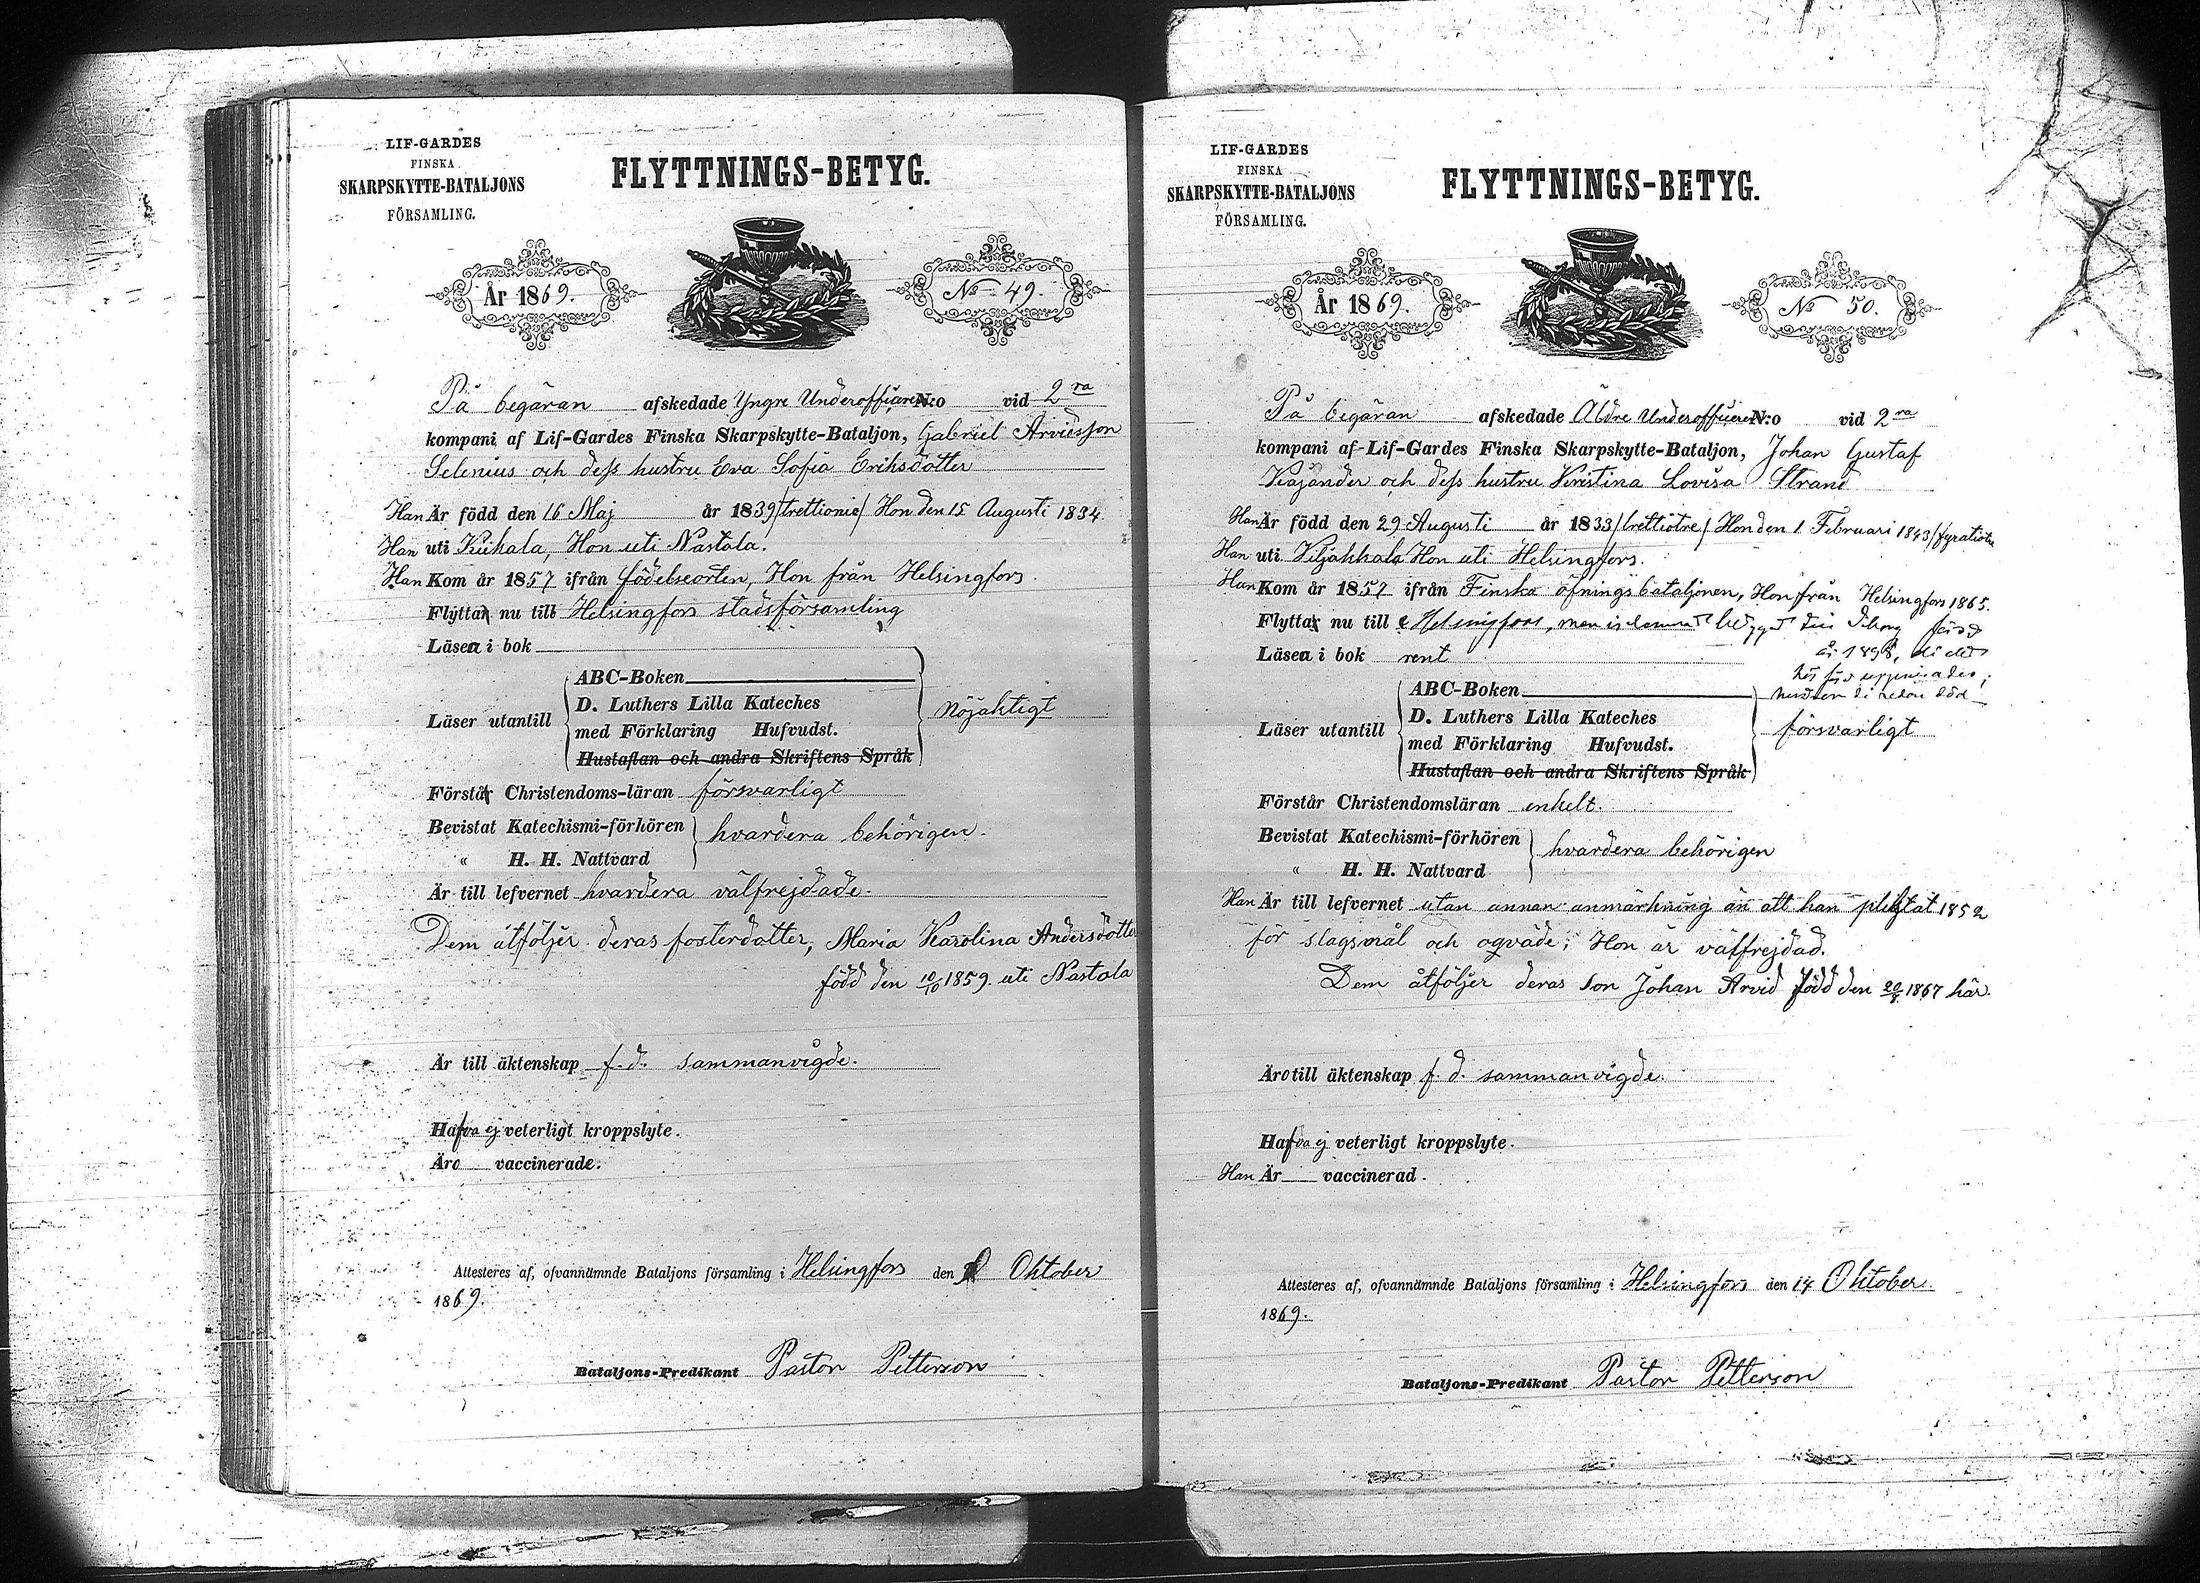 LIF-GARDES
FINSKA
SKARPSKYTTE-BATALJONS
FÖRSAMLING.
FLYTTNINGS-BETYG.
År 1869.
No 49.
På begäran afskedade Yngre Underofficare N:o vid 2ra
kompani af Lif-Gardes Finska Skarpskytte-Bataljon, Gabriel Arvidsson
Selenius och dess hustru Eva Sofia Eriksdotter
Han Är född den 16 Maj år 1839/trettionie/ Hon den 15 Augusti 1834.
Han uti Kiikala, Hon uti Nastola.
Han Kom år 1857 ifrån födelseorten, Hon från Helsingfors.
Flytta nu till Helsingfors stadsförsamling
Läsea i bok
ABC-Boken
D. Luthers Lilla Kateches
Läser utantill
med Förklaring Hufvudst.
Hustaflan och andra Skriftens Språk
nöjaktigt
Förstå Christendoms-läran försvarligt
Bevistat Katechismi-förhören
hvardera behörigen.
" H. H. Nattvard
Är till lefvernet hvardera välfrejdade.
Dem åtföljer deras fosterdotter, Maria Karolina Andersdotter
född den 10/10 1859. uti Nastola
Är till äktenskap f. d. sammanvigde.
Hafva ej veterligt kroppslyte.
Äro vaccinerade.
Attesteres af, ofvannämnde Bataljons församling i Helsingfors den Oktober
1869.
Bataljons-Predikant Pastor Petterson
LIF-GARDES
FINSKA
SKARPSKYTTE-BATALJONS
FÖRSAMLING.
FLYTTNINGS-BETYG.
År 1869.
No 50.
På begäran afskedade Äldre Underofficeren N:o vid 2ra
kompani af Lif-Gardes Finska Skarpskytte-Bataljon, Johan Gustaf
Kajander och dess hustru Kristina Lovisa Strand
Han Är född den 29 Augusti år 1833/trettiotre/ Hon den 1 Februari 1843/fyratiotre
Han uti Viljakkala Hon uti Helsingfors.
Han Kom år 1857 ifrån Finska öfningsbataljonen, Hon från Helsingfors 1865.
Flytta nu till Helsingfors, men först
år 1898, då det
Läsea i bok rent
ABC-Boken
D. Luthers Lilla Kateches
Läser utantill
med Förklaring Hufvudst.
Hustaflan och andra Skriftens Språk
försvarligt
Förstår Christendomsläran enkelt.
Bevistat Katechismi-förhören
hvardera behörigen
" H. H. Nattvard
Han Är till lefvernet utan annan anmärkning än att han pliktat 1852
för slagsmål och oqväde; Hon är välfrejdad.
Dem åtföljer deras son Johan Arvid född den 20/8 1867 här.
Äro till äktenskap f. d. sammanvigde.
Hafva ej veterligt kroppslyte.
Han Är vaccinerad.
Attesteres af, ofvannämnde Bataljons församling i Helsingfors den 14 Oktober
1869.
Bataljons-Predikant Pastor Petterson